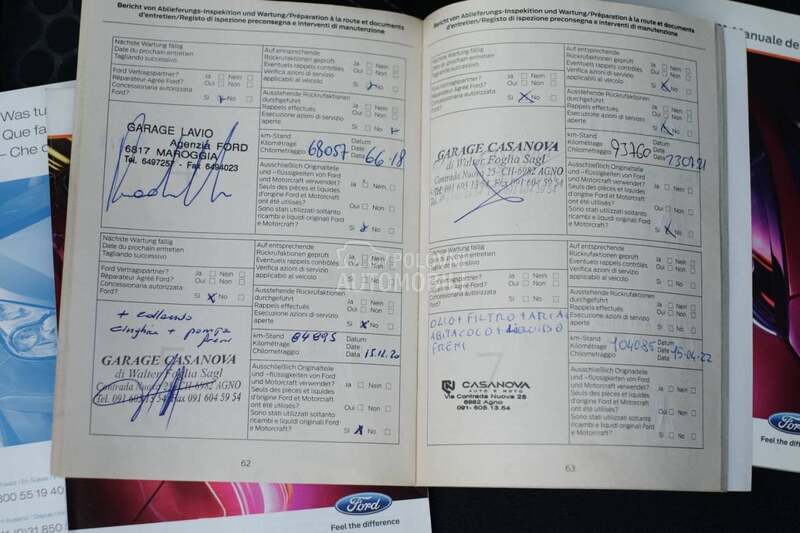 Bericht von Ablieferungs-Inspekition und Wartung/Préparation à la route et documents
d'entretien/Registo di ispezione preconsegna e interventi di manutenzione
Nächste Wartung fällig
Date du prochain entretien
Tagliando successivo
Auf entsprechende
Rückrufaktionen geprüft
Eventuels rappels contrôlés
Verifica azioni di servizio
applicabili al veicolo
Ja Nein
Oui Non
Si No
Ford Vertragspartner?
Réparateur Agréé Ford?
Concessionaria autorizzata
Ford?
Ja Nein
Oui Non
Si No
Ausstehende Rückrufaktionen
durchgeführt
Rappels effectués
Esecuzione azioni di servizio
aperte
Si No
GARAGE LAVIO
Agenzia FORD
6817 MAROGGIA
Tel. 6497257 - Fax 6494023
km-Stand
Kilométrage
Chilometraggio
68057
Datum
Date
Data
6 6 18
Ausschließlich Originalteile
und -flüssigkeiten von Ford
und Motorcraft verwendet?
Seuls des pièces et liquides
d'origine Ford et Motorcraft
ont été utilisés?
Sono stati utilizzati soltanto
ricambi e liquidi originali Ford
e Motorcraft?
Ja Nein
Oui Non
Si No
Nächste Wartung fällig
Date du prochain entretien
Tagliando successivo
Auf entsprechende
Rückrufaktionen geprüft
Eventuels rappels contrôlés
Verifica azioni di servizio
applicabili al veicolo
Ja Nein
Oui Non
Si No
Ford Vertragspartner?
Réparateur Agréé Ford?
Concessionaria autorizzata
Ford?
Ja Nein
Oui Non
Si No
Ausstehende Rückrufaktionen
durchgeführt
Rappels effectués
Esecuzione azioni di servizio
aperte
Si No
cinghia + pompa
freni
GARAGE CASANOVA
di Walter Foglia Sagl
Contrada Nuova 25 - CH-6982 AGNO
Tel. 091 605 13 54 Fax 091 604 59 54
km-Stand
Kilométrage
Chilometraggio
84895
Datum
Date
Data
15.12.20
Ausschließlich Originalteile
und -flüssigkeiten von Ford
und Motorcraft verwendet?
Seuls des pièces et liquides
d'origine Ford et Motorcraft
ont été utilisés?
Sono stati utilizzati soltanto
ricambi e liquidi originali Ford
e Motorcraft?
Ja Nein
Oui Non
Si No
62
Bericht von Ablieferungs-Inspekition und Wartung/Préparation à la route et documents
d'entretien/Registo di ispezione preconsegna e interventi di manutenzione
Nächste Wartung fällig
Date du prochain entretien
Tagliando successivo
Auf entsprechende
Rückrufaktionen geprüft
Eventuels rappels contrôlés
Verifica azioni di servizio
applicabili al veicolo
Ja Nein
Oui Non
Si No
Ford Vertragspartner?
Réparateur Agréé Ford?
Concessionaria autorizzata
Ford?
Ja Nein
Oui Non
Si No
Ausstehende Rückrufaktionen
durchgeführt
Rappels effectués
Esecuzione azioni di servizio
aperte
Si No
GARAGE CASANOVA
di Walter Foglia Sagl
Contrada Nuova 25 - CH-6982 AGNO
Tel. 091 605 13 54 Fax 091 604 59 54
km-Stand
Kilométrage
Chilometraggio
93760
Datum
Date
Data
23.07.21
Ausschließlich Originalteile
und -flüssigkeiten von Ford
und Motorcraft verwendet?
Seuls des pièces et liquides
d'origine Ford et Motorcraft
ont été utilisés?
Sono stati utilizzati soltanto
ricambi e liquidi originali Ford
e Motorcraft?
Ja Nein
Oui Non
Si No
Nächste Wartung fällig
Date du prochain entretien
Tagliando successivo
Auf entsprechende
Rückrufaktionen geprüft
Eventuels rappels contrôlés
Verifica azioni di servizio
applicabili al veicolo
Ja Nein
Oui Non
Si No
Ford Vertragspartner?
Réparateur Agréé Ford?
Concessionaria autorizzata
Ford?
Ja Nein
Oui Non
Si No
Ausstehende Rückrufaktionen
durchgeführt
Rappels effectués
Esecuzione azioni di servizio
aperte
Si No
OLIO + FILTRO + ARIA
ABITACOLO + LIQUIDO
FRENI
7
CASANOVA
AUTO E MOTO
Via Contrada Nuova 25
6982 Agno
091- 605.13.54
km-Stand
Kilométrage
Chilometraggio
104085
Datum
Date
Data
15-04-22
Ausschließlich Originalteile
und -flüssigkeiten von Ford
und Motorcraft verwendet?
Seuls des pièces et liquides
d'origine Ford et Motorcraft
ont été utilisés?
Sono stati utilizzati soltanto
ricambi e liquidi originali Ford
e Motorcraft?
Ja Nein
Oui Non
Si No
63
POLOVNI
AUTOMOBILI
Was tu
Que fa
Che
800 55 19 40
031 850
Ford
Feel the difference
Manuale de
Ford
Feel the difference